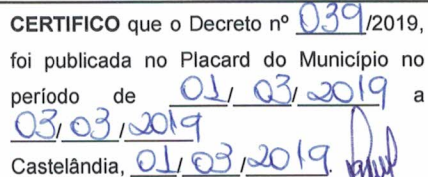 CERTIFICO que o Decreto nº 039/2019,
foi publicada no Placard do Município no
período de 01/ 03/ 2019 a
03/ 03 /2019
Castelândia, 01/ 03 /2019.